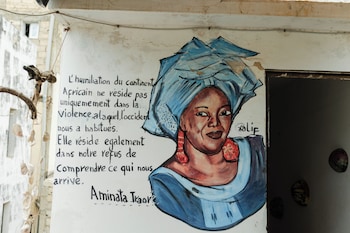 L'humiliation du continent
Africain ne réside pas
uniquement dans la
violence, à laquel l'occident
nous a habitues.
Elle réside également
dans notre refus de
comprendre ce qui nous
arrive.
Aminata Traoré